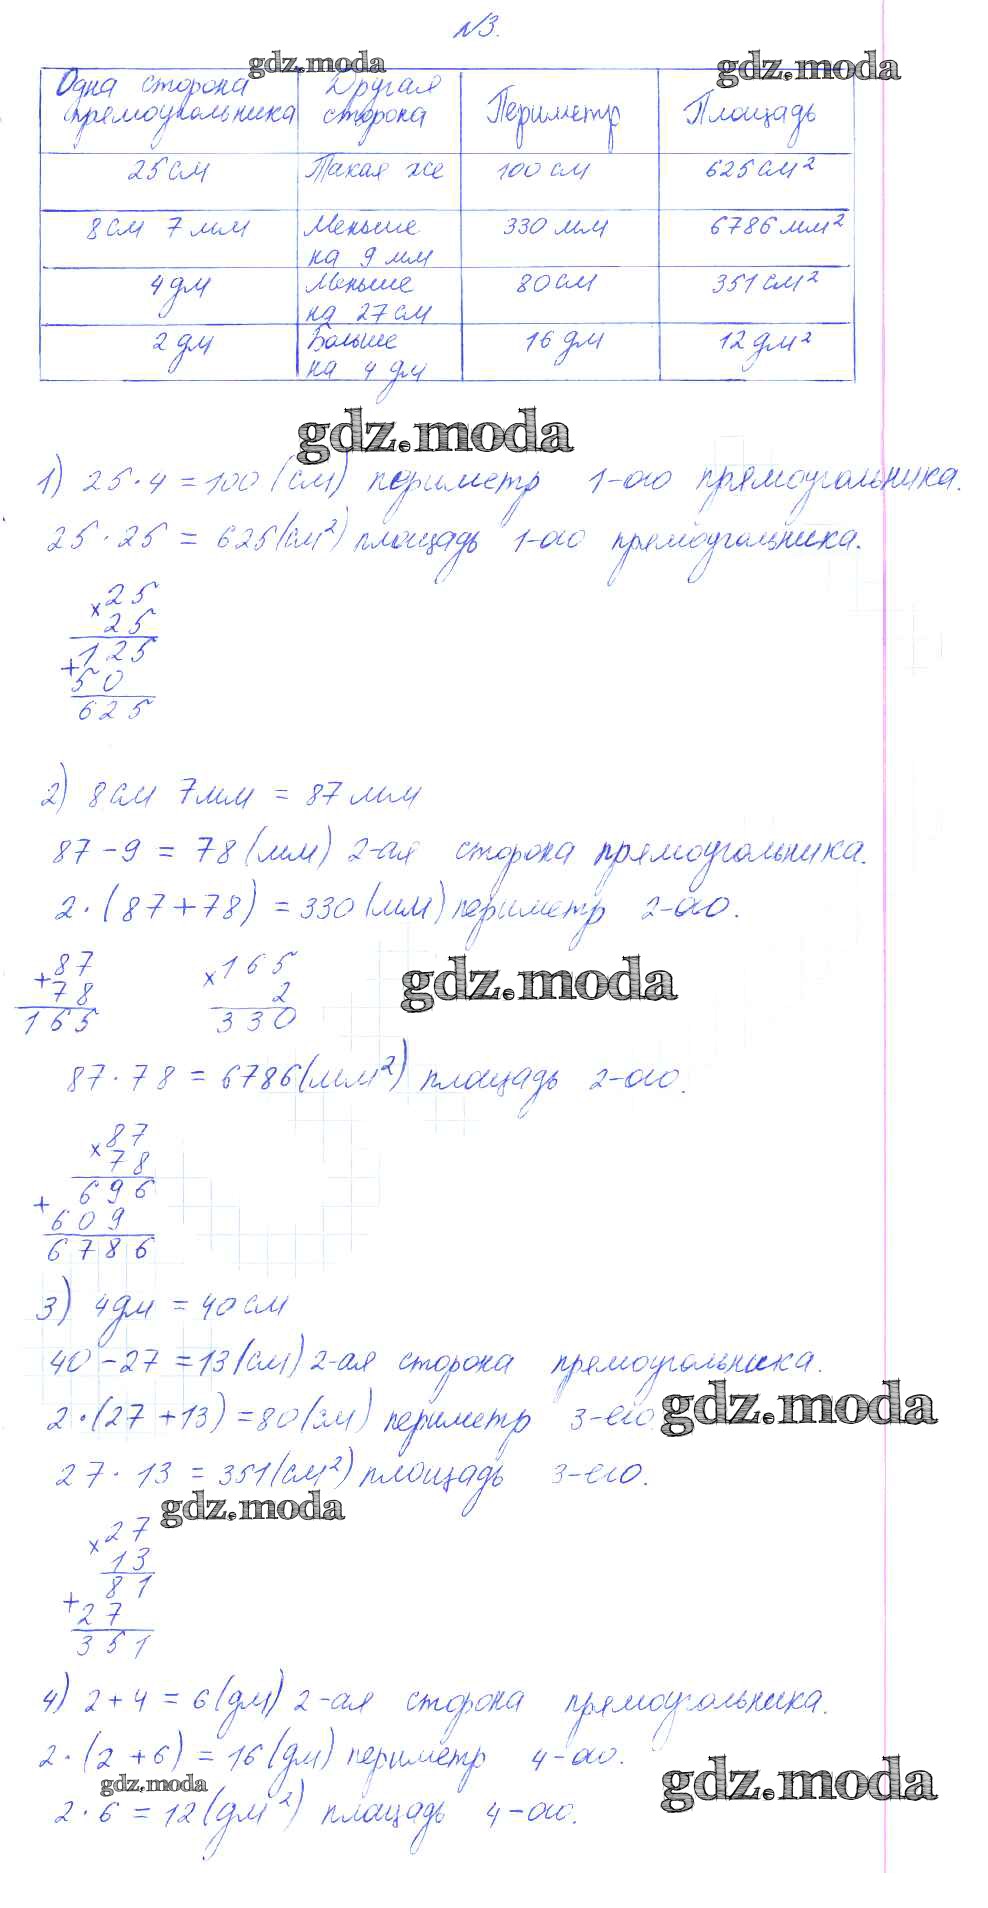 №3.
gdz.moda gdz.moda
Одна сторона прямоугольника | Другая сторона | Периметр | Площадь
25 см | Такая же | 100 см | 625 см²
8 см 7 мм | Меньше на 9 мм | 330 мм | 6786 мм²
4 дм | Меньше на 27 см | 80 см | 351 см²
2 дм | Больше на 4 дм | 16 дм | 12 дм²
gdz.moda
1) 25 · 4 = 100 (см) периметр 1-ого прямоугольника.
25 · 25 = 625 (см²) площадь 1-ого прямоугольника.
× 25
25
125
+ 50
625
2) 8 см 7 мм = 87 мм
87 - 9 = 78 (мм) 2-ая сторона прямоугольника.
2 · (87 + 78) = 330 (мм) периметр 2-ого.
+ 87 × 165
78 2
165 330
gdz.moda
87 · 78 = 6786 (мм²) площадь 2-ого.
× 87
78
696
+ 609
6786
3) 4 дм = 40 см
40 - 27 = 13 (см) 2-ая сторона прямоугольника.
2 · (27 + 13) = 80 (см) периметр 3-его.
gdz.moda
27 · 13 = 351 (см²) площадь 3-его.
gdz.moda
× 27
13
81
+ 27
351
4) 2 + 4 = 6 (дм) 2-ая сторона прямоугольника.
2 · (2 + 6) = 16 (дм) периметр 4-ого.
gdz.moda gdz.moda
2 · 6 = 12 (дм²) площадь 4-ого.